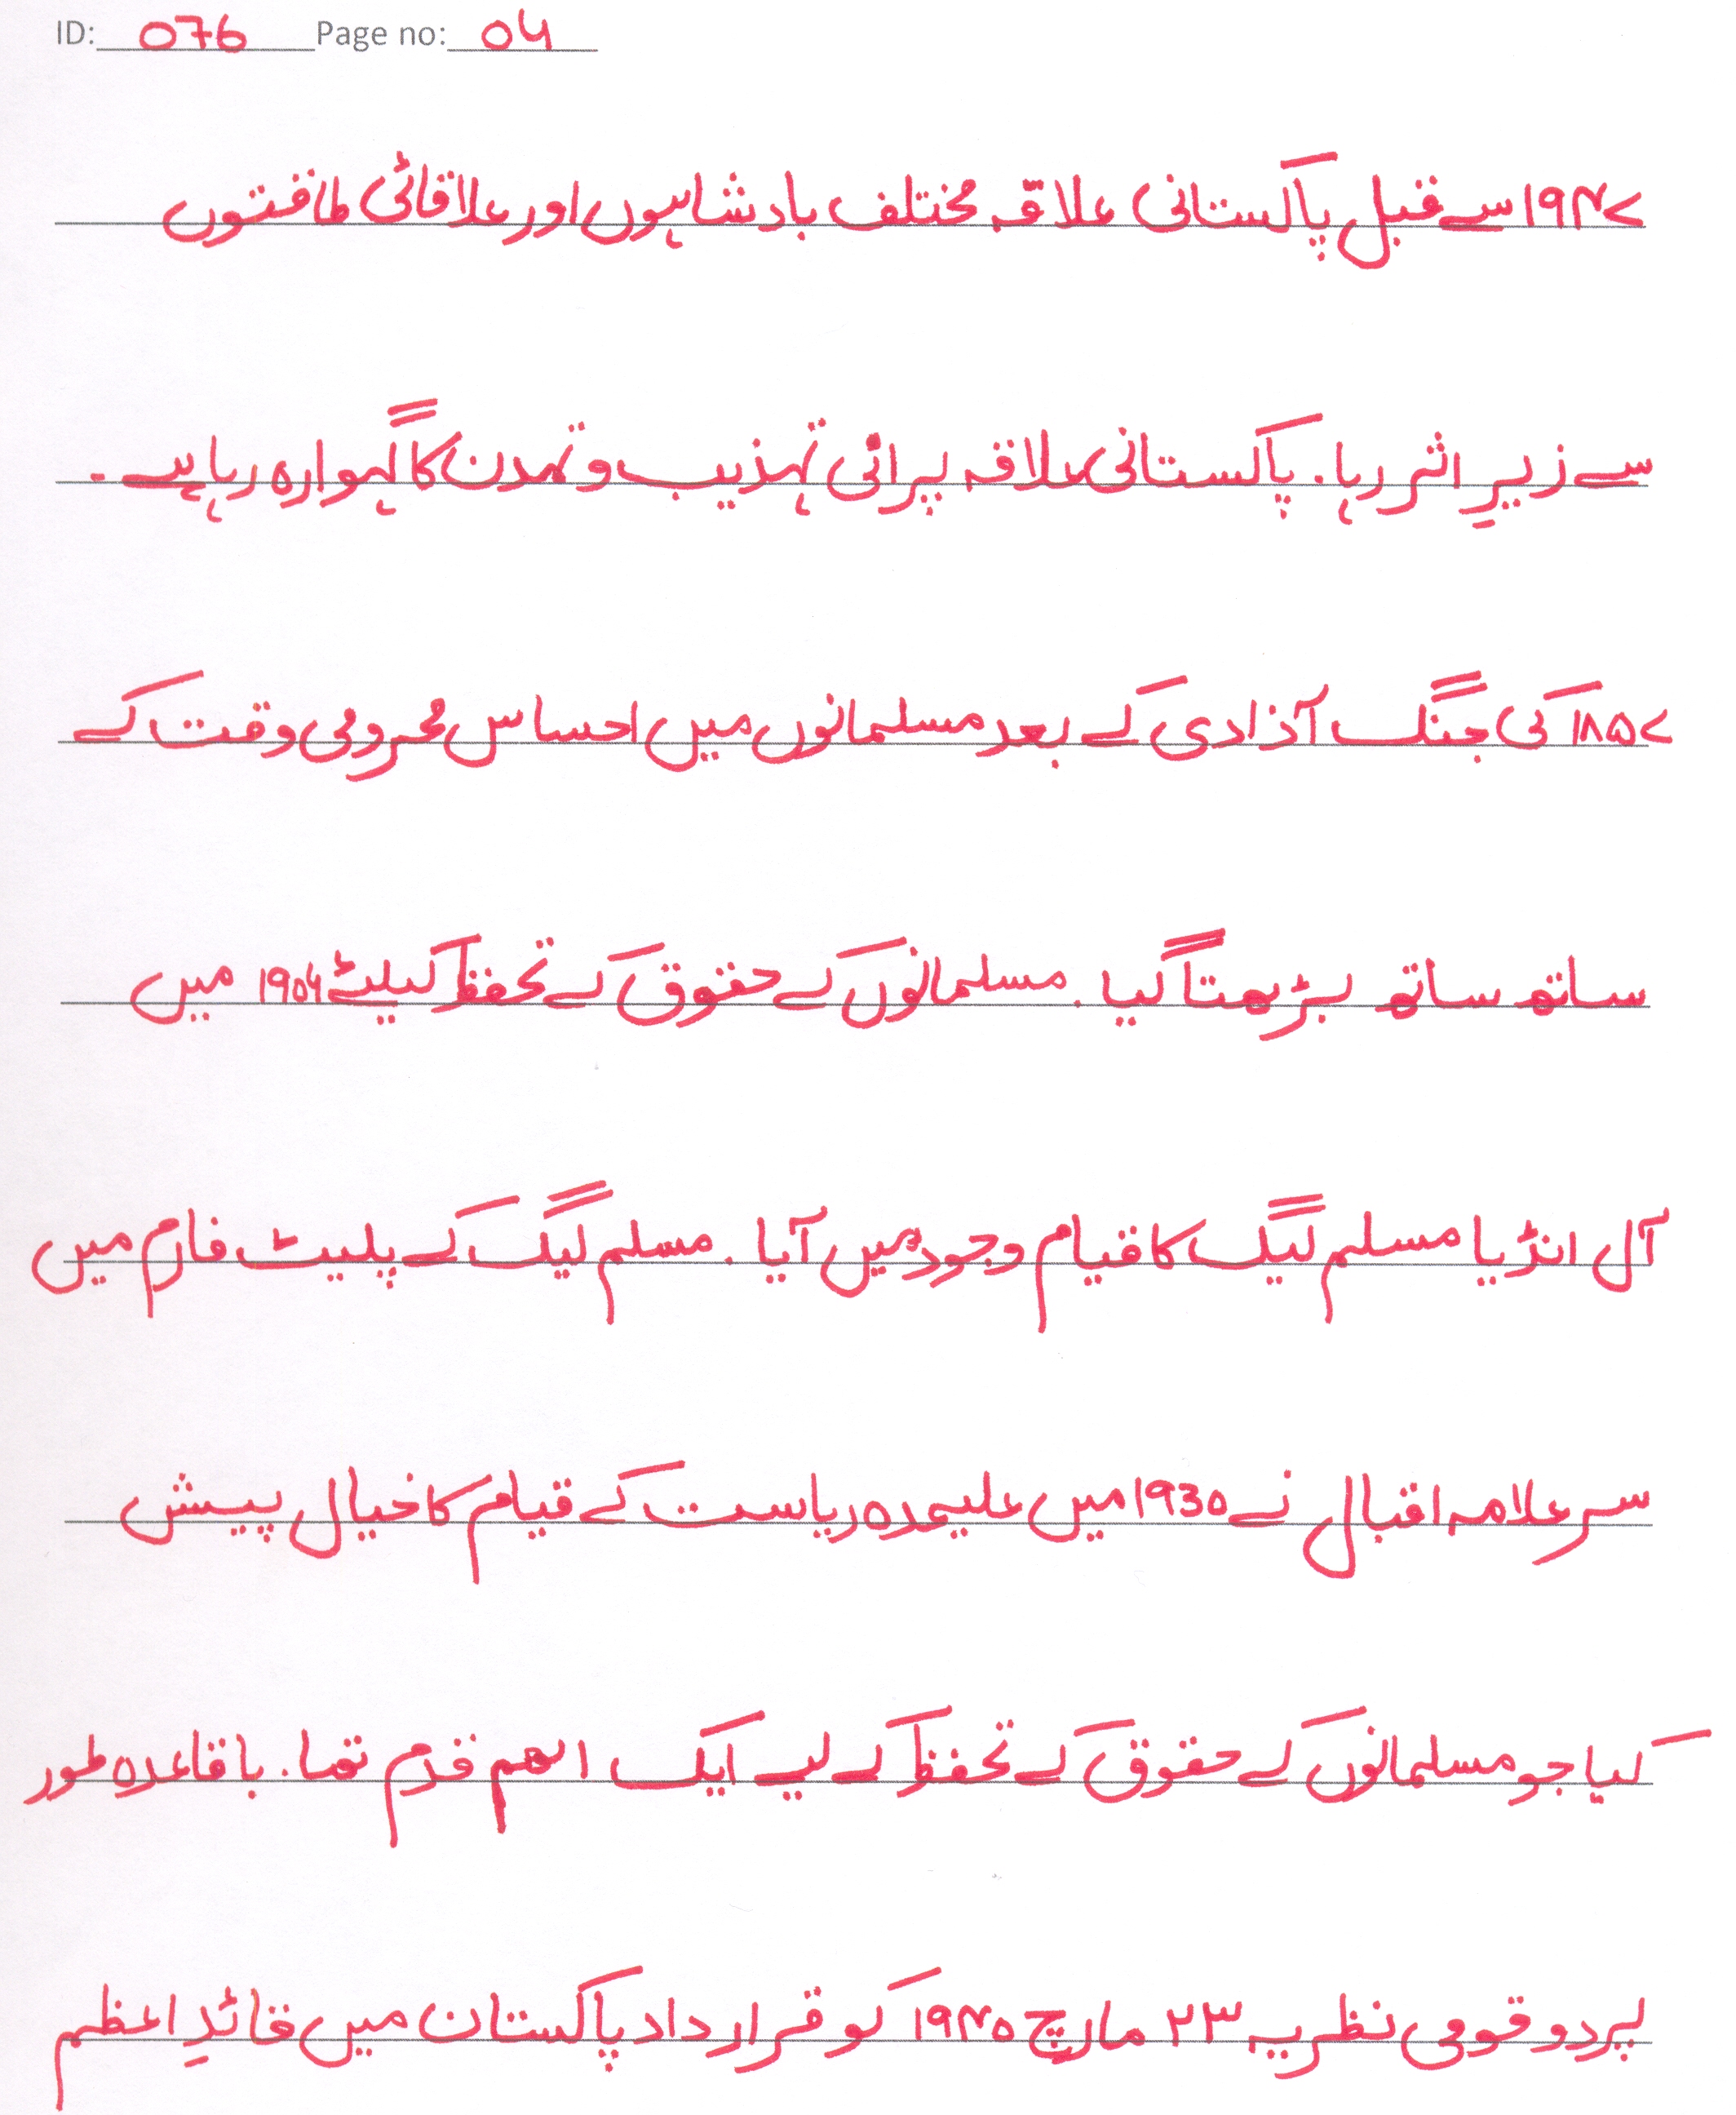 ID: 076 Page no: 04
۱۹۴۷ سے قبل پاکستانی علاقہ مختلف بادشاہوں اور علاقائی طاقتوں
سے زیرِ اثر رہا۔ پاکستانی علاقہ پرانی تہذیب و تمدن کا گہوارہ رہا ہے۔
۱۸۵۷ کی جنگ آذادی کے بعد مسلمانوں میں احساس محرومی وقت کے
ساتھ ساتھ بڑھتا گیا۔ مسلمانوں کے حقوق کے تحفظ کیلئے ۱۹۰۶ میں
آل انڈیا مسلم لیگ کا قیام وجود میں آیا۔ مسلم لیگ کے پلیٹ فارم میں
سر علامہ اقبال نے 1930 میں علیحدہ ریاست کے قیام کا خیال پیش
کیا جو مسلمانوں کے حقوق کے تحفظ کے لیے ایک اھم قدم تھا۔ باقاعدہ طور
پر دو قومی نظریہ ۲۳ مارچ ۱۹۴۰ کو قرارداد پاکستان میں قائدِ اعظم